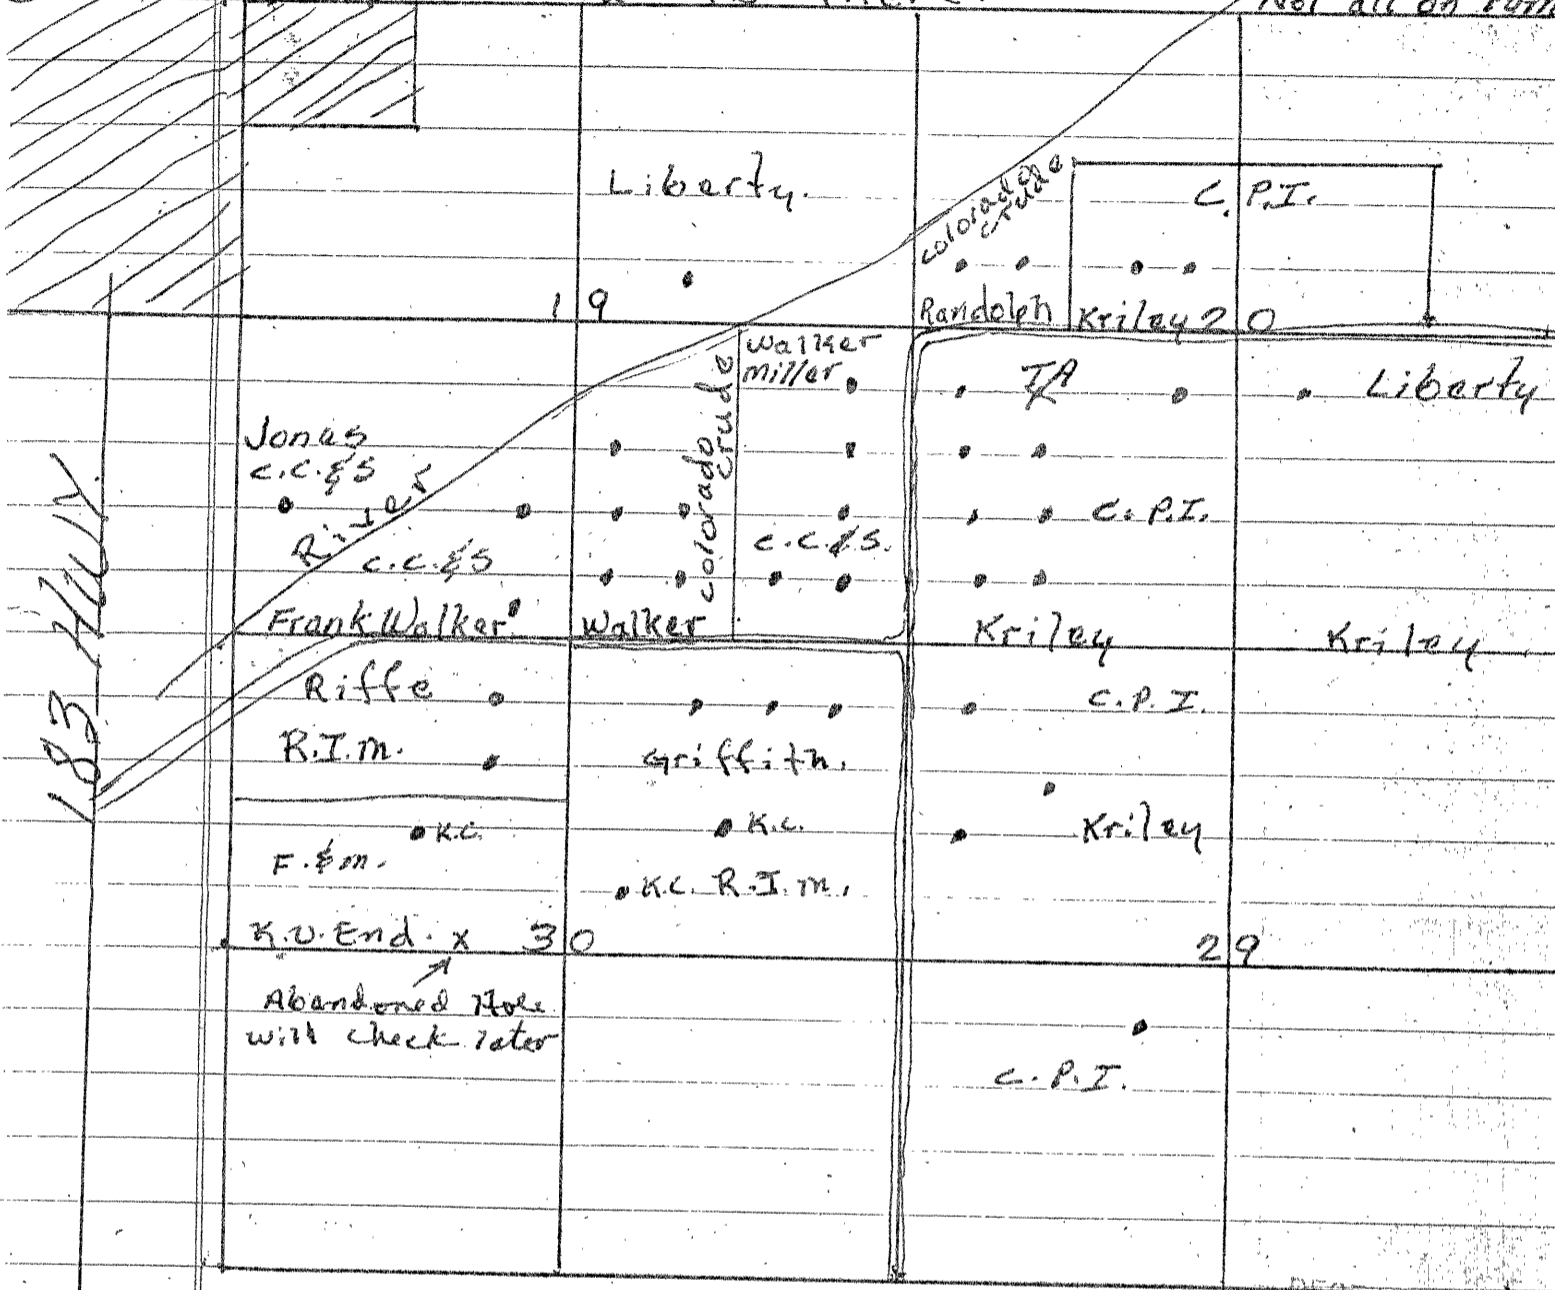 Not all on
Liberty.
Colorado
Crude
C.P.I.
19
Randolph
Kriley 20
Walker
Miller
Colorado
Crude
TA
Liberty
Jonas
C.C.&S
River
C.C.&S
C.C.&S.
C.P.I.
183 Hwy.
Frank Walker
Walker
Kriley
Kriley
Riffe
C.P.I.
R.I.M.
Griffith.
K.C.
K.C.
Kriley
F.&M.
K.C. R.I.M.
K.U. End. x
30
29
Abandoned Hole
will check later
C.P.I.